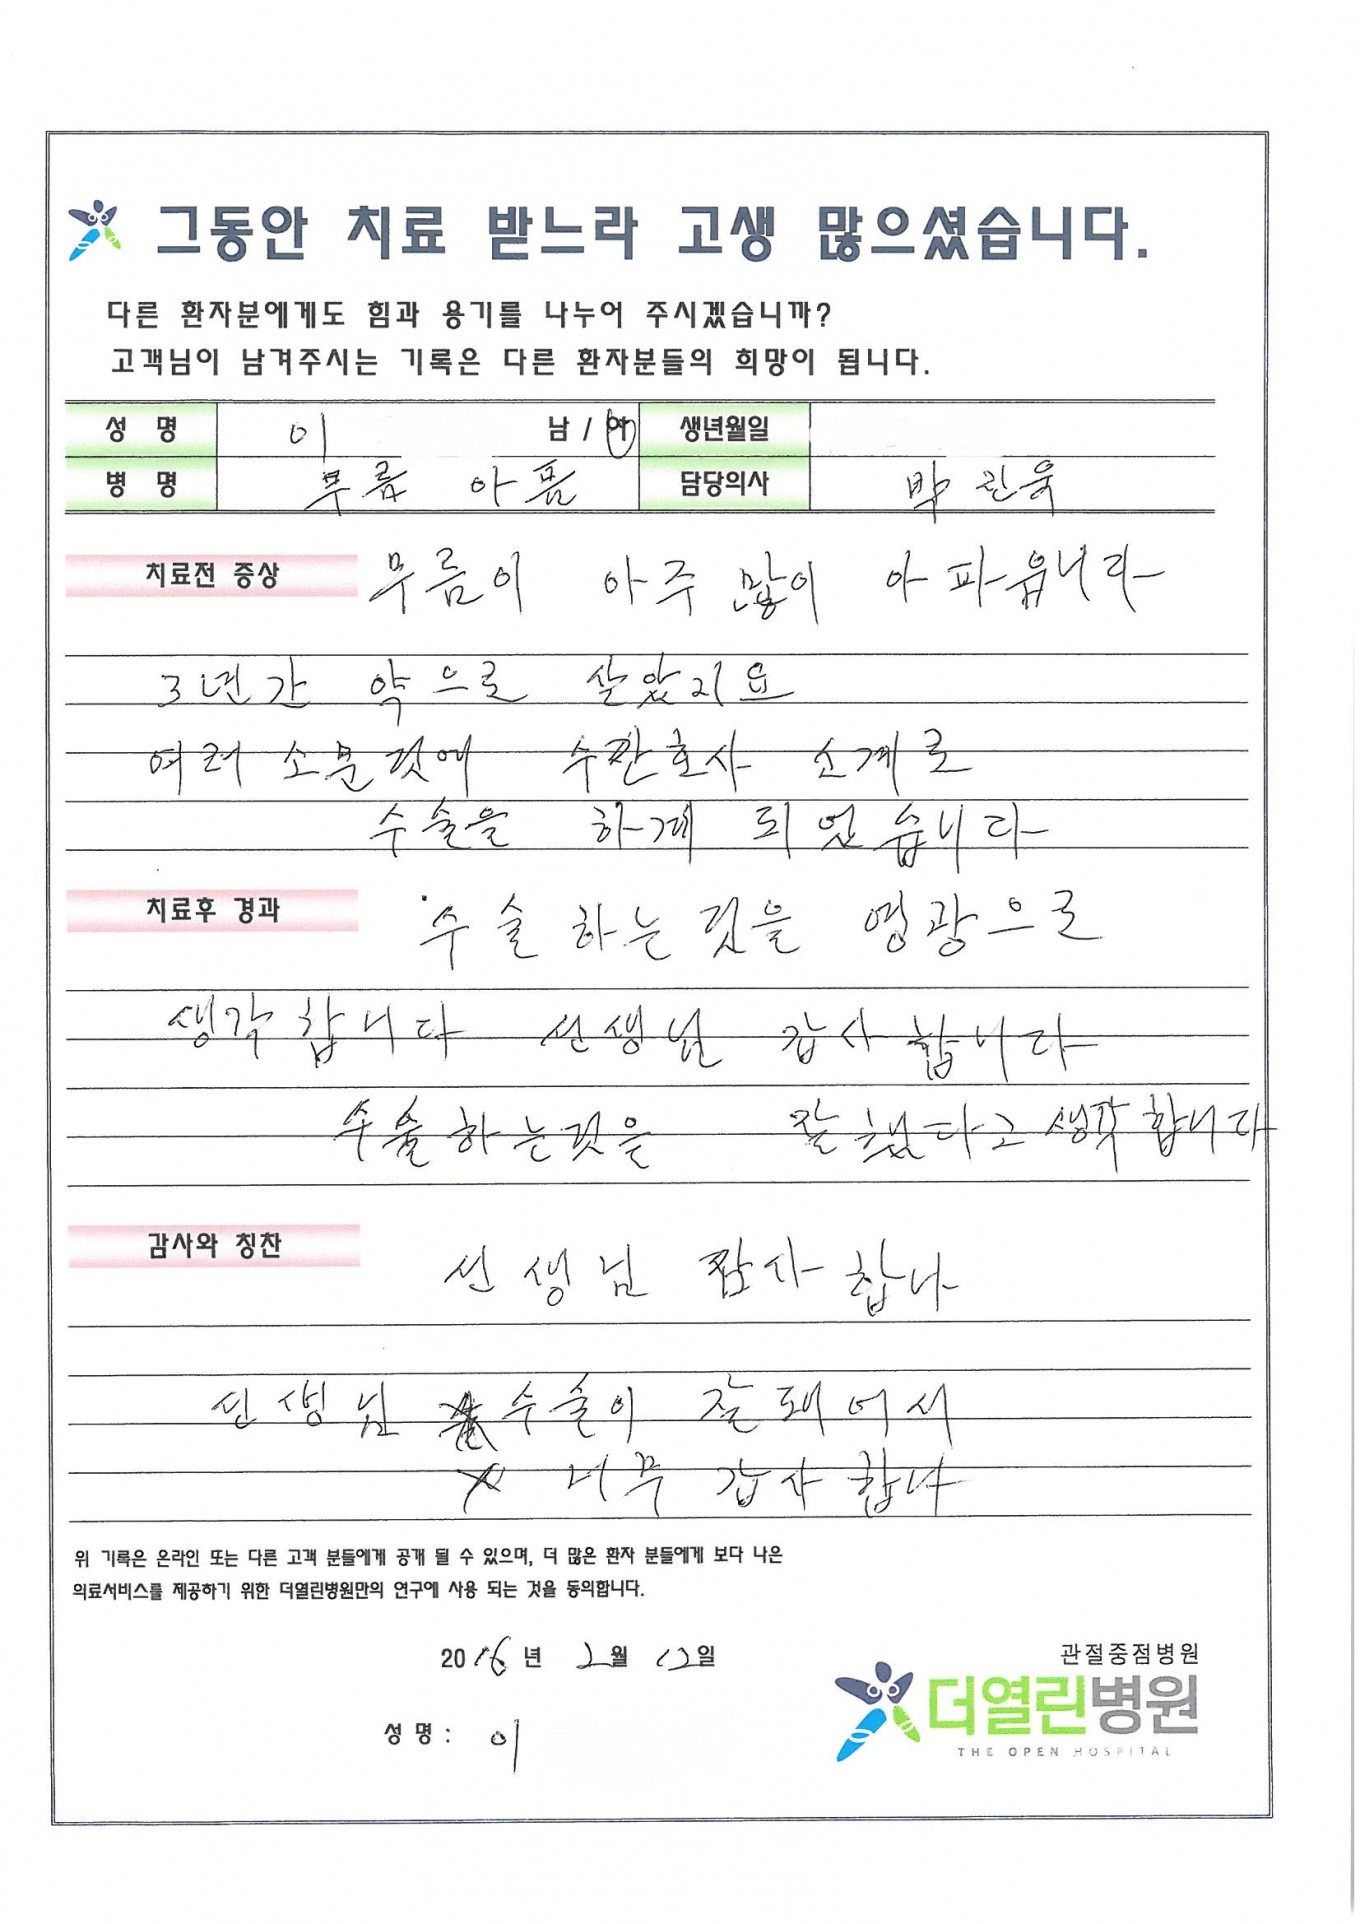 그동안 치료 받느라 고생 많으셨습니다.
다른 환자분에게도 힘과 용기를 나누어 주시겠습니까?
고객님이 남겨주시는 기록은 다른 환자분들의 희망이 됩니다.
성 명 이 남 / 여 생년월일
병 명 무릎 아픔 담당의사 박진욱
치료전 증상 무름이 아주 많이 아파웁니다
3년간 약으로 살았지요
여러 소문것에 수간호사 소계로
수술을 하게 되었습니다
치료후 경과 수술하는것을 영광으로
생각합니다 선생님 감사합니다
수술하는것을 잘했다고 생각합니다
감사와 칭찬 선생님 감사합니다
선생님 수술이 잘돼어서
너무 감사합니다
위 기록은 온라인 또는 다른 고객 분들에게 공개 될 수 있으며, 더 많은 환자 분들에게 보다 나은
의료서비스를 제공하기 위한 더열린병원만의 연구에 사용 되는 것을 동의합니다.
2016년 2월 12일
관절중점병원
더열린병원
THE OPEN HOSPITAL
성 명 : 이